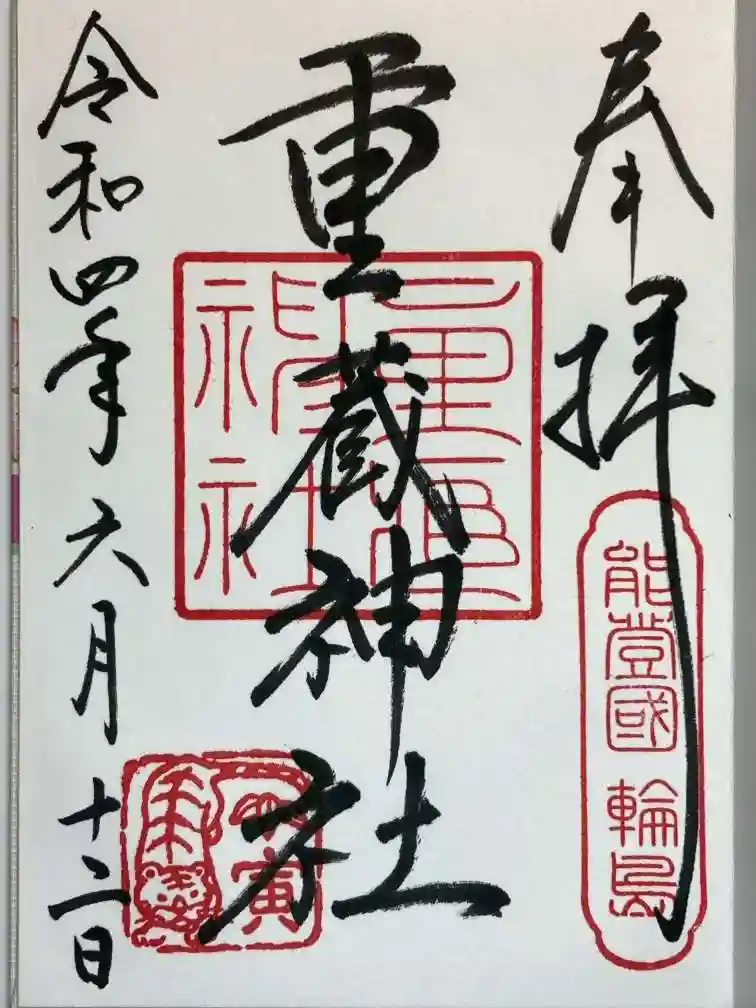 奉拝
能登國 輪島
重蔵神社
重蔵神社
壬寅
令和四年六月十二日